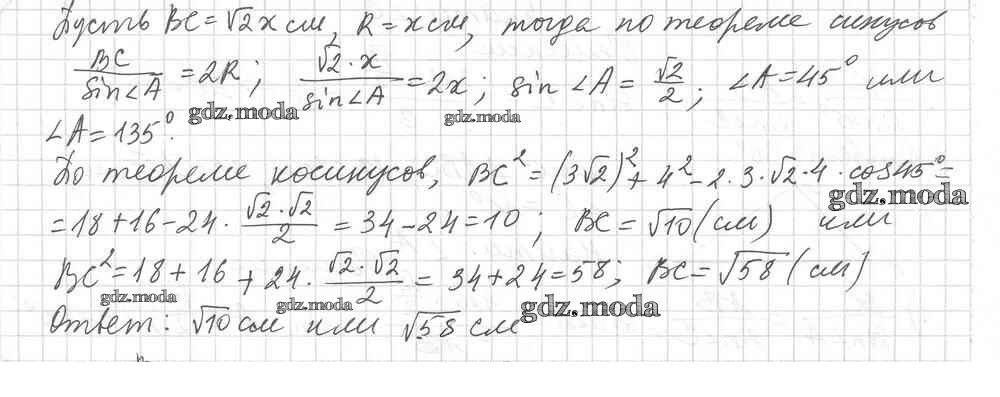 Пусть BC = √2 x см, R = x см, тогда по теореме синусов
BC/sin∠A = 2R; √2·x/sin∠A = 2x; sin∠A = √2/2; ∠A = 45° или
gdz.moda gdz.moda
∠A = 135°.
По теореме косинусов, BC² = (3√2)² + 4² - 2·3·√2·4·cos45° =
gdz.moda
= 18 + 16 - 24 · √2·√2/2 = 34 - 24 = 10; BC = √10 (см) или
BC² = 18 + 16 + 24 · √2·√2/2 = 34 + 24 = 58; BC = √58 (см)
gdz.moda gdz.moda gdz.moda
Ответ: √10 см или √58 см